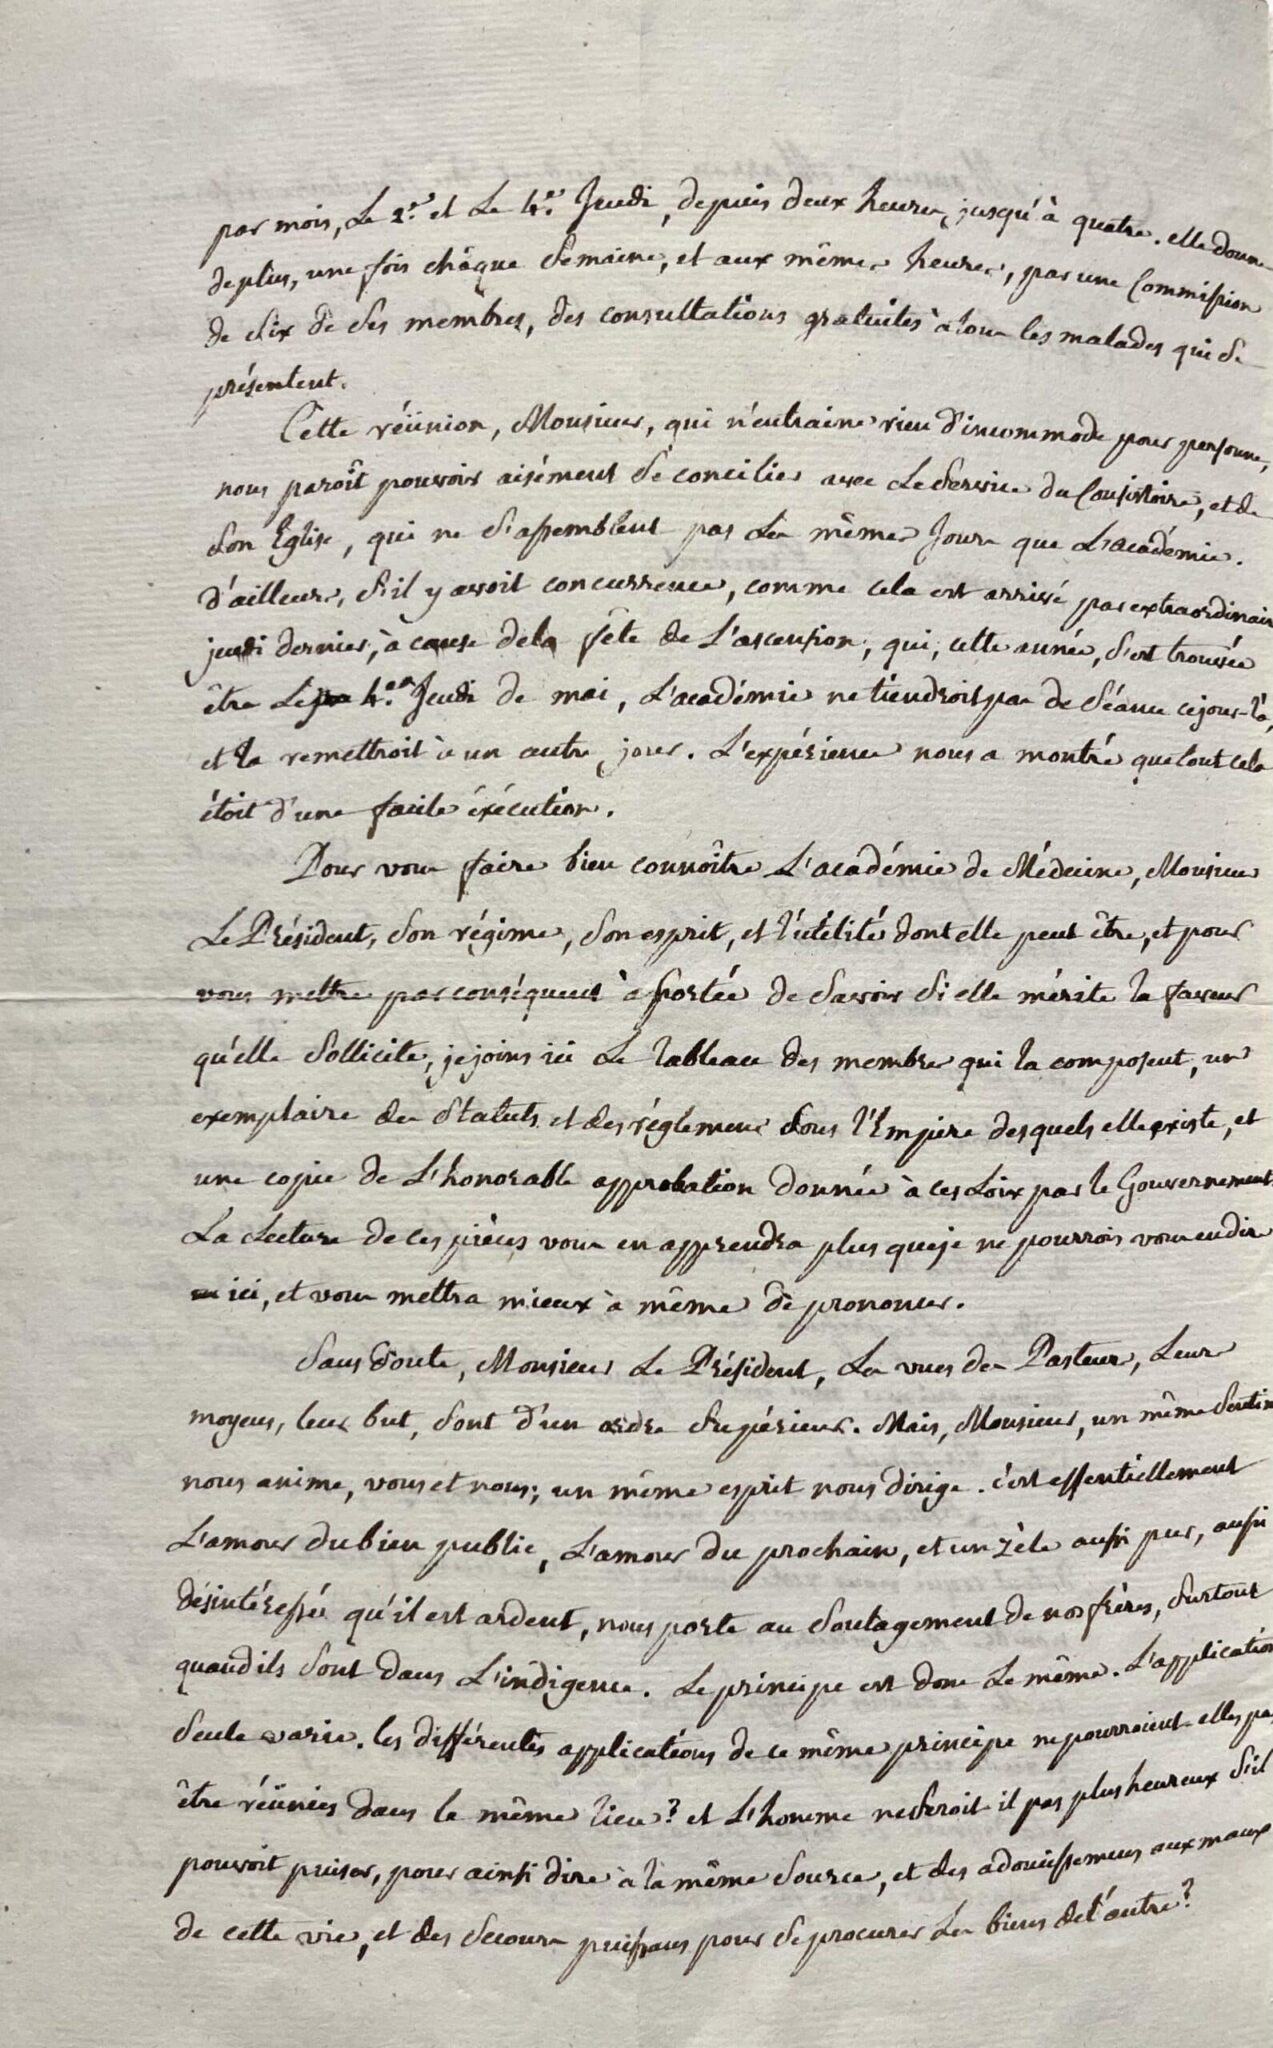 par mois, Le 2.e et Le 4.e Jeudi, depuis deux heures jusqu'à quatre. elle donne
de plus, une fois châque Semaine, et aux mêmes heures, par une Commission
de Six de Ses membres, des consultations gratuites à tous les malades qui Se
présentent.
Cette réünion, Monsieur, qui n'entraine rien d'incommode pour personne,
nous paroît pouvoir aisément Se concilier avec Le Service du Consistoire, et de
Son Eglise, qui ne S'assemblent pas Les mêmes Jours que L'académie.
d'ailleurs, S'il y avoit concurrence, comme cela est arrivé par extraordinaire
jeudi dernier, à cause de la fête de L'ascension, qui, cette année, S'est trouvée
être Le 4.e Jeudi de mai, L'académie ne tiendroit pas de Séance ce jour-là,
et la remettroit à un autre jour. L'expérience nous a montré que tout cela
étoit d'une facile éxécution.
Pour vous faire bien connoître L'académie de Médecine, Monsieur
Le Président, Son régime, Son esprit, et l'utilité dont elle peut être, et pour
vous mettre par conséquent à portée de Savoir Si elle mérite la faveur
qu'elle Sollicite, je joins ici Le tableau des membres qui la composent, un
exemplaire des Statuts et des réglemens Sous l'Empire desquels elle existe, et
une copie de L'honorable approbation donnée à ces Loix par le Gouvernement.
La Lecture de ces pièces vous en apprendra plus que je ne pourrois vous en dire
ici, et vous mettra mieux à même de prononcer.
Sans doute, Monsieur Le Président, Les vues des Pasteurs, Leurs
moyens, leur but, Sont d'un ordre Supérieur. Mais, Monsieur, un même Sentim
nous anime, vous et nous; un même esprit nous dirige. c'est essentiellement
L'amour du bien public, L'amour du prochain, et un zèle aussi pur, aussi
désintéressé qu'il est ardent, nous porte au Soulagement de nos frères, Surtout
quand ils Sont dans L'indigence. Le principe est donc Le même. L'application
Seule varie. les différentes applications de ce même principe ne pourroient-elles pas
être réünies dans le même lieu? et L'homme ne Seroit-il pas plus heureux S'il
pouvoit puiser, pour ainsi dire à la même Source, et des adoucissemens aux maux
de cette vie, et des Secours puissans pour Se procurer Les biens de l'autre?